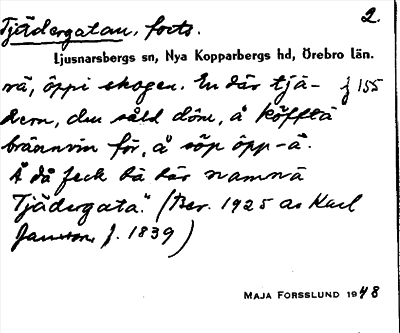 Tjädergatan, forts. 2.
Ljusnarsbergs sn, Nya Kopparbergs hd, Örebro län.
rä, öppi skogen. En där tjä- f 155
dern, den såld döm, å köfftä
brännvin för, å söp öpp -ä.
Å då feck bä där namnä
Tjädergata." (Ber. 1925 av Karl
Jansson, f. 1839)
MAJA FORSSLUND 1948